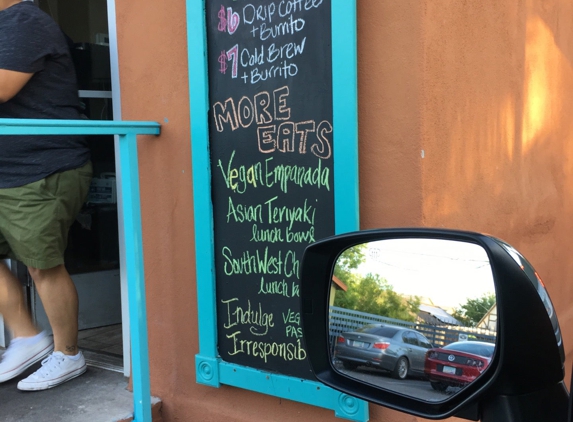 $6 Drip Coffee
+ Burrito
$7 Cold Brew
+ Burrito
MORE
EATS
Vegan Empanada
Asian Teriyaki
lunch bowl
SouthWest
lunch
Indulge
Irresponsib